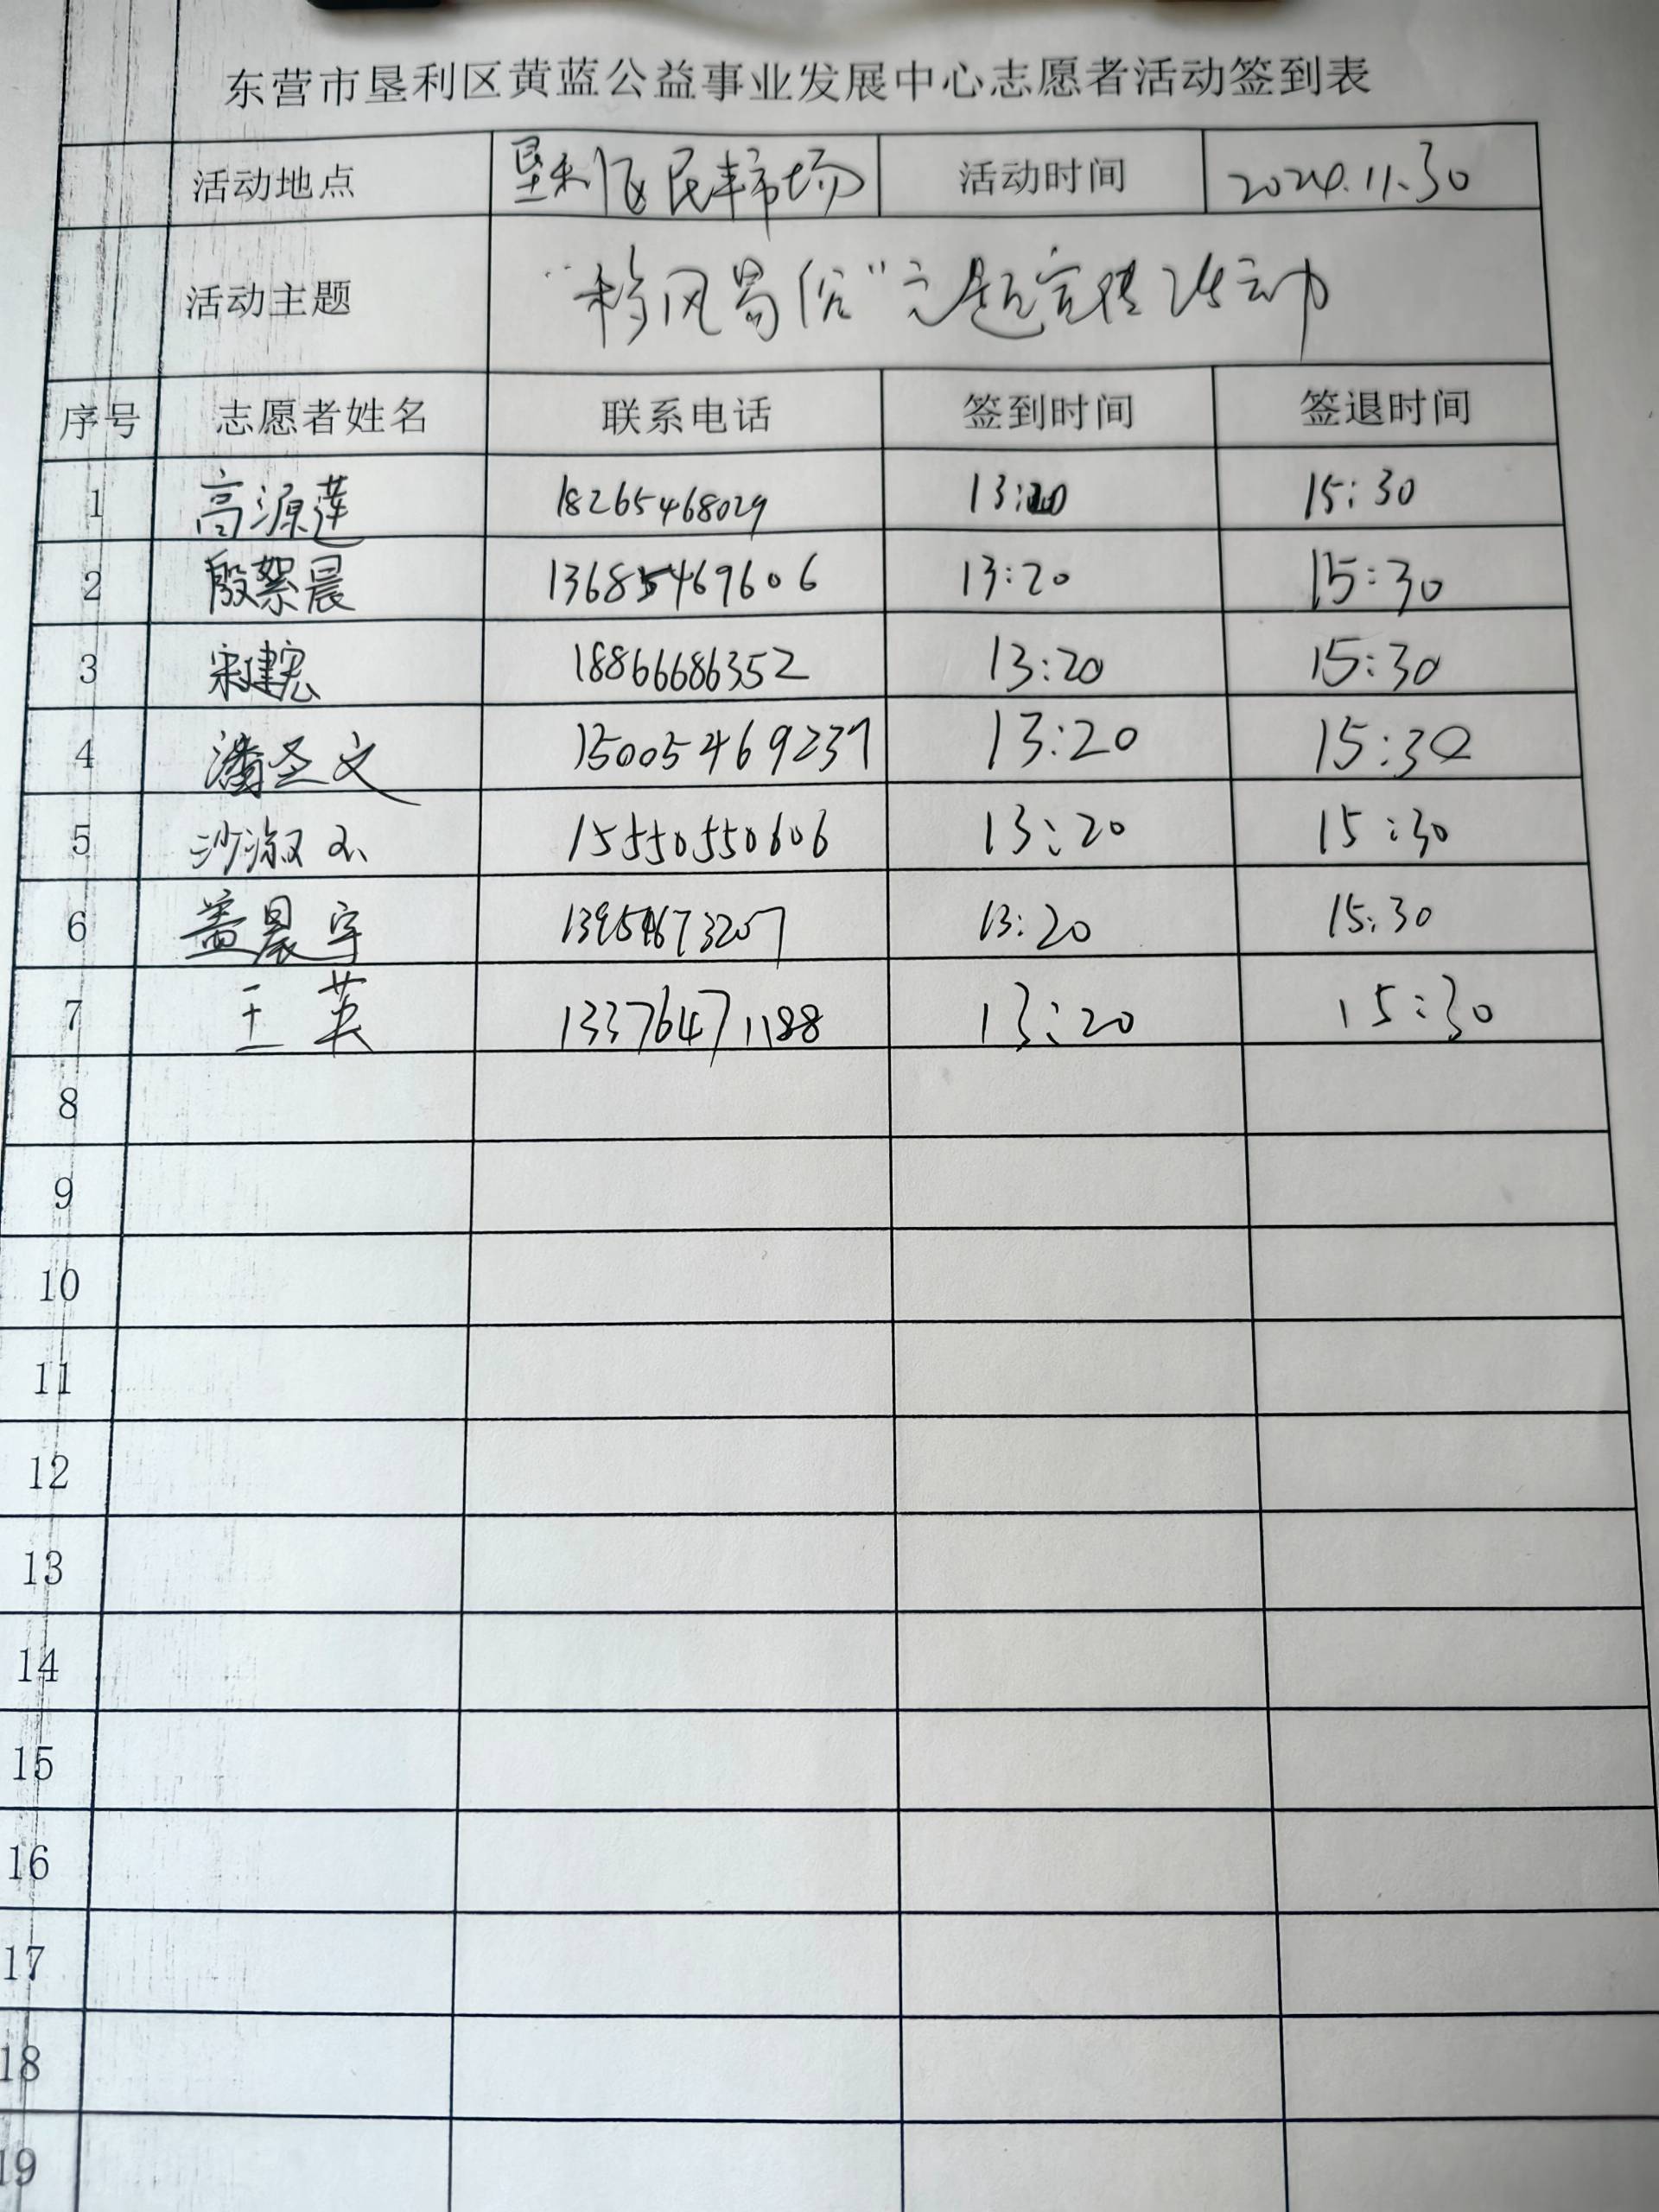 东营市垦利区黄蓝公益事业发展中心志愿者活动签到表
活动地点 垦利区民丰市场 活动时间 2024.11.30
活动主题 “移风易俗”主题宣传活动
序号 志愿者姓名 联系电话 签到时间 签退时间
1 高源莲 18265468029 13:20 15:30
2 殷絮晨 13685469606 13:20 15:30
3 宋建宽 18866686352 13:20 15:30
4 潘圣文 15005469237 13:20 15:30
5 沙淑 15550550606 13:20 15:30
6 盖晨宇 13954673207 13:20 15:30
7 王英 13376471188 13:20 15:30
8
9
10
11
12
13
14
15
16
17
18
19